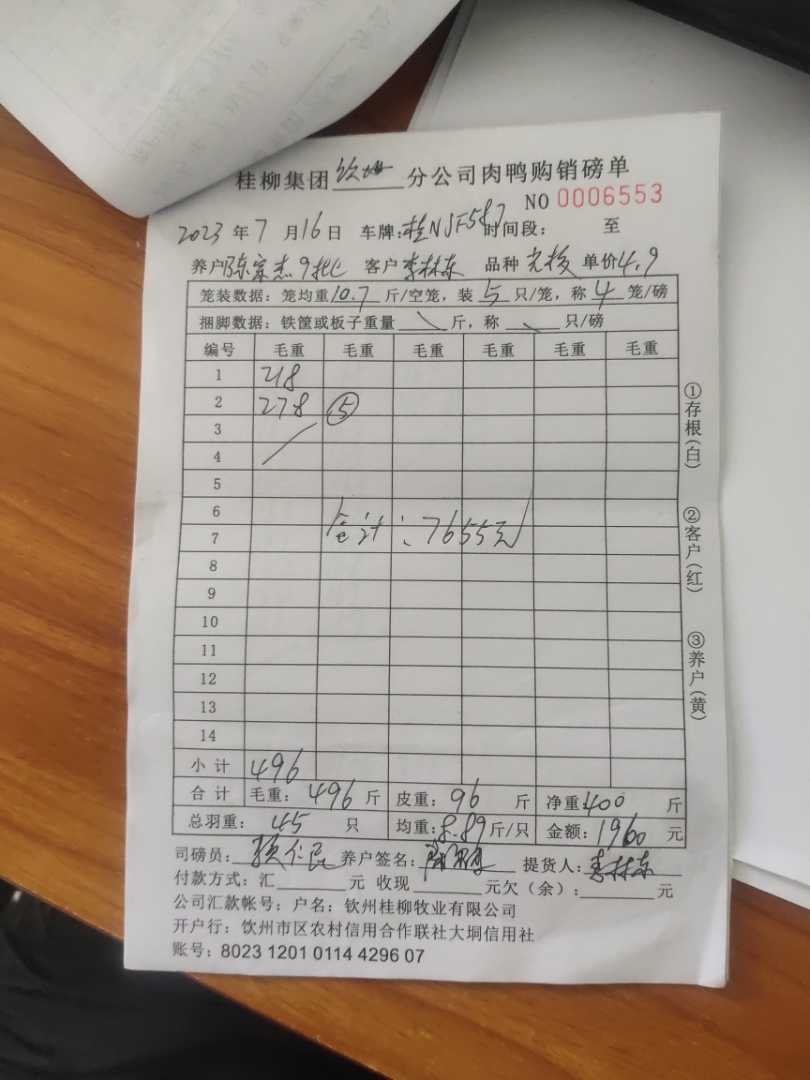 桂柳集团 钦州 分公司肉鸭购销磅单
NO 0006553
2023 年 7 月 16 日 车牌: 桂NJF587 时间段: 至
养户 陈富杰9批 客户 李林东 品种 单价 4.9
笼装数据: 笼均重 10.7 斤/空笼, 装 5 只/笼, 称 4 笼/磅
捆脚数据: 铁筐或板子重量 \ 斤, 称 \ 只/磅
编号 毛重 毛重 毛重 毛重 毛重 毛重
1 218
2 278 ⑤
3
4
5
6
7 合计: 7655元
8
9
10
11
12
13
14
小 计 496
合 计 毛重: 496 斤 皮重: 96 斤 净重: 400 斤
总羽重: 45 只 均重: 8.89 斤/只 金额: 1960 元
司磅员: 养户签名: 提货人: 李林东
付款方式: 汇 元 收现 元欠(余): 元
公司汇款帐号: 户名: 钦州桂柳牧业有限公司
开户行: 饮州市区农村信用合作联社大垌信用社
账号: 8023 1201 0114 4296 07
①存根(白)
②客户(红)
③养户(黄)